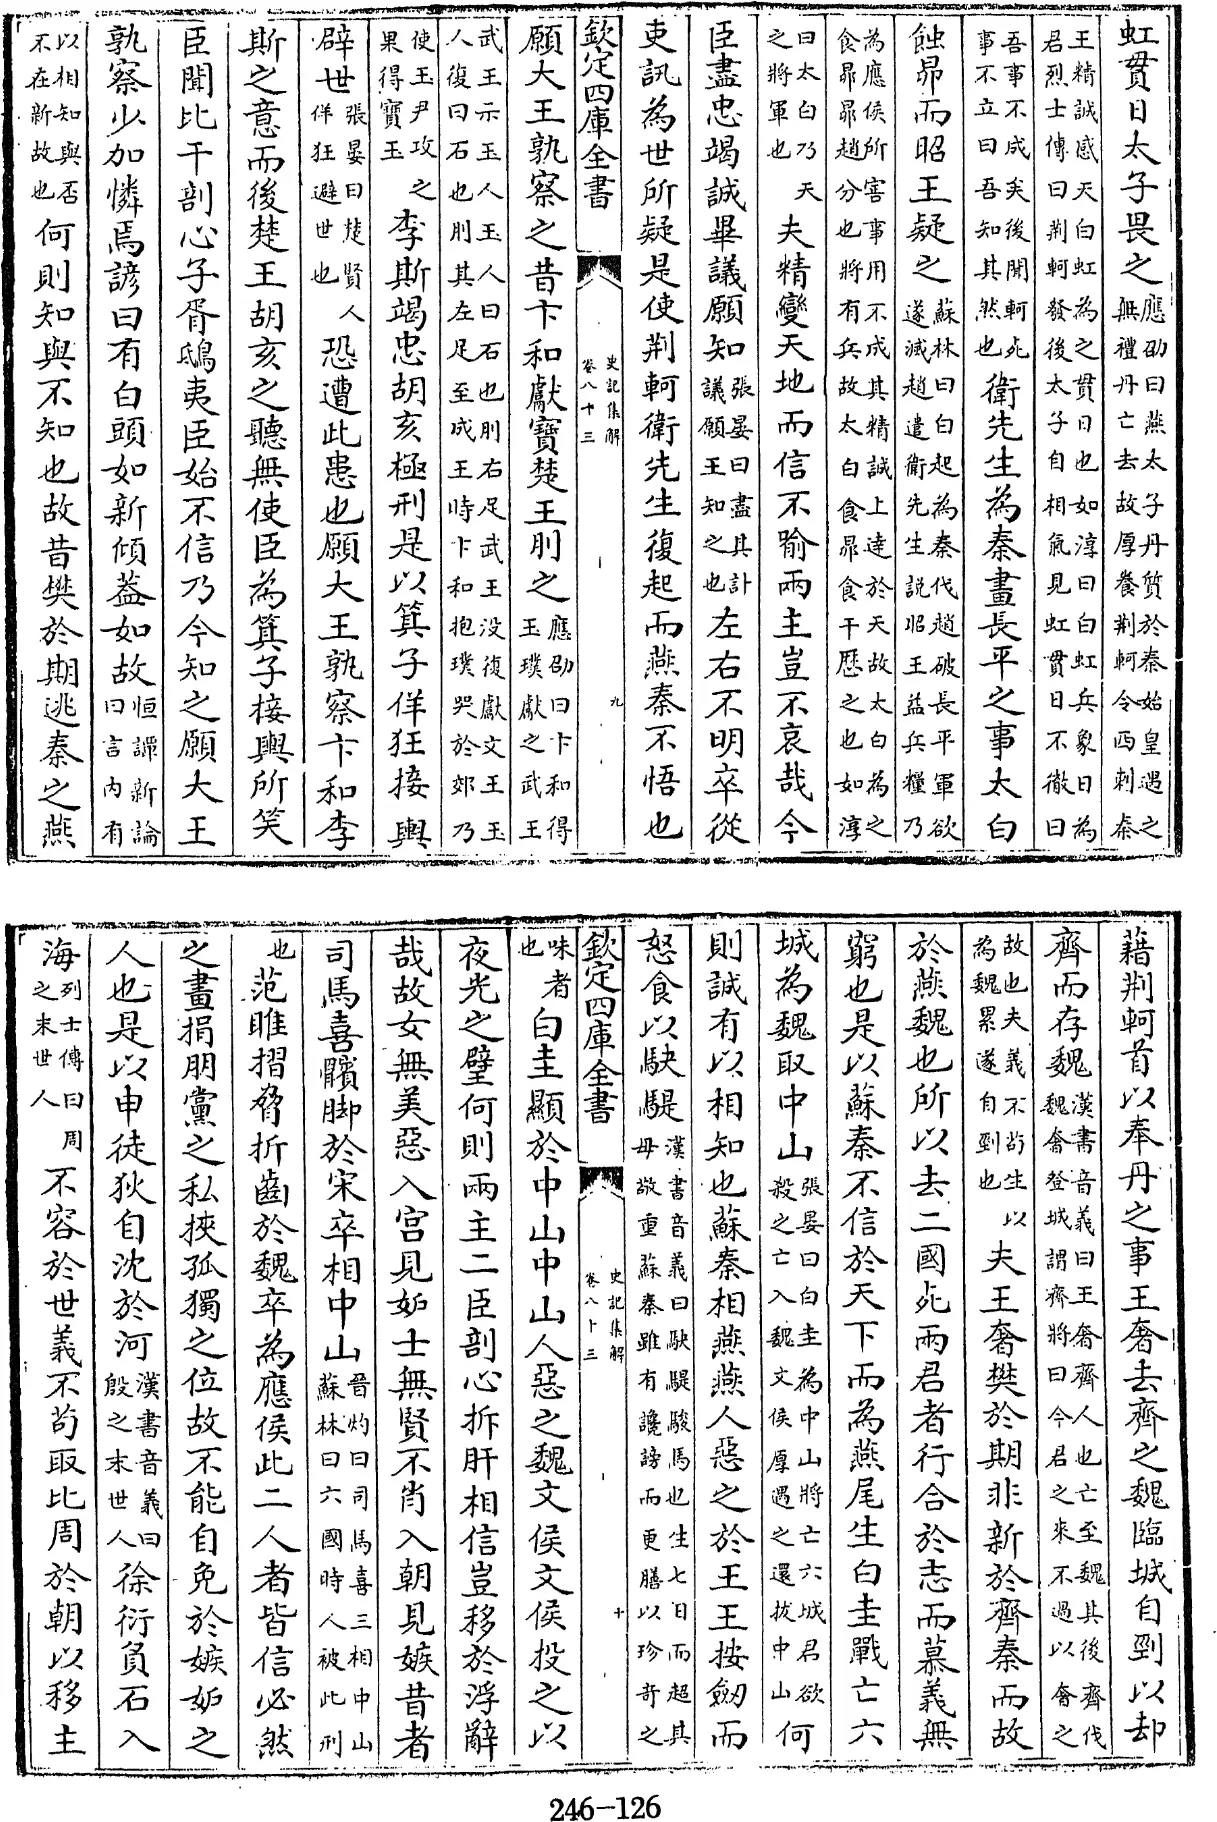 虹貫日太子畏之應劭曰燕太子丹質於秦始皇遇之無禮丹亡去故厚養荆軻令西刺秦
王精誠感天白虹為之貫日也如淳曰白虹兵象日為君烈士傳曰荆軻發後太子自相氣見虹貫日不徹曰
吾事不成矣後聞軻死事不立曰吾知其然也衛先生為秦畫長平之事太白
蝕昴而昭王疑之蘇林曰白起為秦伐趙破長平軍欲遂滅趙遣衛先生説昭王益兵糧乃
為應侯所害事用不成其精誠上達於天故太白為之食昴昴趙分也將有兵故太白食昴食干歷之也如淳
曰太白乃天之將軍也夫精變天地而信不喻兩主豈不哀哉今
臣盡忠竭誠畢議願知張晏曰盡其計議願王知之也左右不明卒從
吏訊為世所疑是使荆軻衛先生復起而燕秦不悟也
欽定四庫全書 史記集解 卷八十三 九
願大王孰察之昔卞和獻寶楚王刖之應劭曰卞和得玉璞獻之武王
武王示玉人玉人曰石也刖右足武王没復獻文王玉人復曰石也刖其左足至成王時卞和抱璞哭於郊乃
使玉尹攻之果得寶玉李斯竭忠胡亥極刑是以箕子佯狂接輿
辟世張晏曰楚賢人佯狂避世也恐遭此患也願大王孰察卞和李
斯之意而後楚王胡亥之聽無使臣為箕子接輿所笑
臣聞比干剖心子胥鴟夷臣始不信乃今知之願大王
孰察少加憐焉諺曰有白頭如新傾蓋如故恒譚新論曰言内有
以相知與否不在新故也何則知與不知也故昔樊於期逃秦之燕
藉荆軻首以奉丹之事王奢去齊之魏臨城自剄以却
齊而存魏漢書音義曰王奢齊人也亡至魏其後齊伐魏奢登城謂齊將曰今君之來不過以奢之
故也夫義不苟生以為魏累遂自剄也夫王奢樊於期非新於齊秦而故
於燕魏也所以去二國死兩君者行合於志而慕義無
窮也是以蘇秦不信於天下而為燕尾生白圭戰亡六
城為魏取中山張晏曰白圭為中山將亡六城君欲殺之亡入魏文侯厚遇之還拔中山何
則誠有以相知也蘇秦相燕燕人惡之於王王按劒而
怒食以駃騠漢書音義曰駃騠駿馬也生七日而超其母敬重蘇秦雖有讒謗而更膳以珍奇之
欽定四庫全書 史記集解 卷八十三 十
味者也白圭顯於中山中山人惡之魏文侯文侯投之以
夜光之璧何則兩主二臣剖心拆肝相信豈移於浮辭
哉故女無美惡入宫見妒士無賢不肖入朝見嫉昔者
司馬喜髕脚於宋卒相中山晉灼曰司馬喜三相中山蘇林曰六國時人被此刑
也范睢摺脅折齒於魏卒為應侯此二人者皆信必然
之畫捐朋黨之私挾孤獨之位故不能自免於嫉妒之
人也是以申徒狄自沈於河漢書音義曰殷之末世人徐衍負石入
海列士傳曰周之末世人不容於世義不苟取比周於朝以移主
246-126